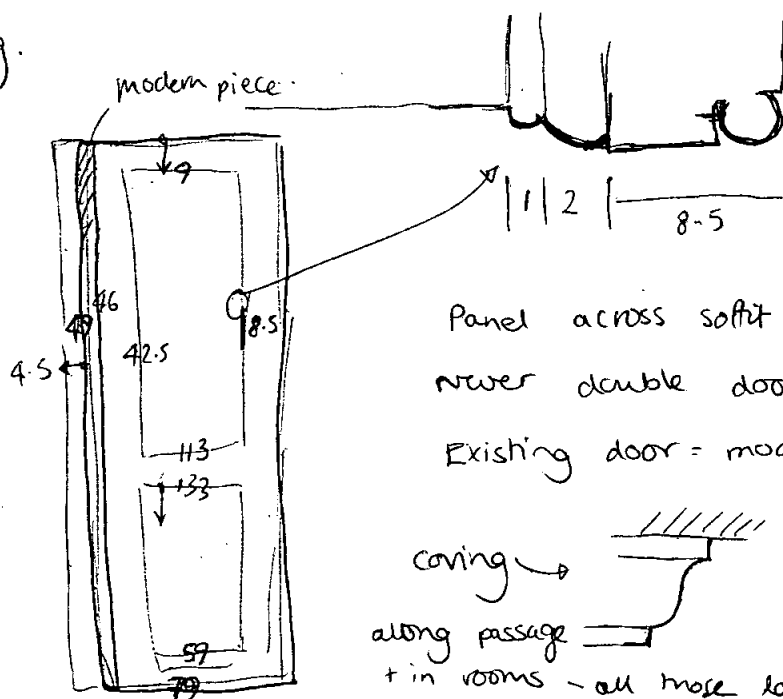 g.
modern piece.
9
1 2
8.5
46
49
8.5
42.5
4.5
113
133
59
79
Panel across soffit
Never double doo
Existing door = mod
coving
along passage
+ in rooms - all those